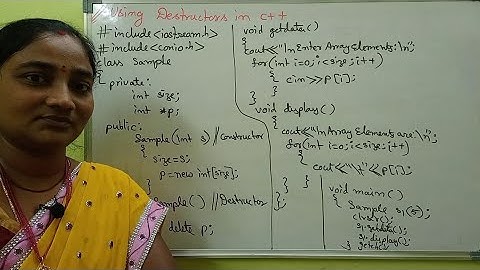 // Using Destructors in C++
#include<iostream.h>
#include<conio.h>
class Sample
{ private:
int size;
int *p;
public:
Sample(int s) //Constructor
{
size=s;
p=new int[size];
ample() //Destructor
delete p;
void getdata()
{
cout<<"\n Enter Array Elements:\n";
for(int i=0;i<size;i++)
{
cin>>p[i];
}
}
void display()
{
cout<<"\n Array Elements are:\n";
for(int i=0;i<size;i++)
{
cout<<"\t"<<p[i];
}
}
};
void main()
{
Sample s1(5);
clrscr();
s1.getdata();
s1.display();
getch();
}